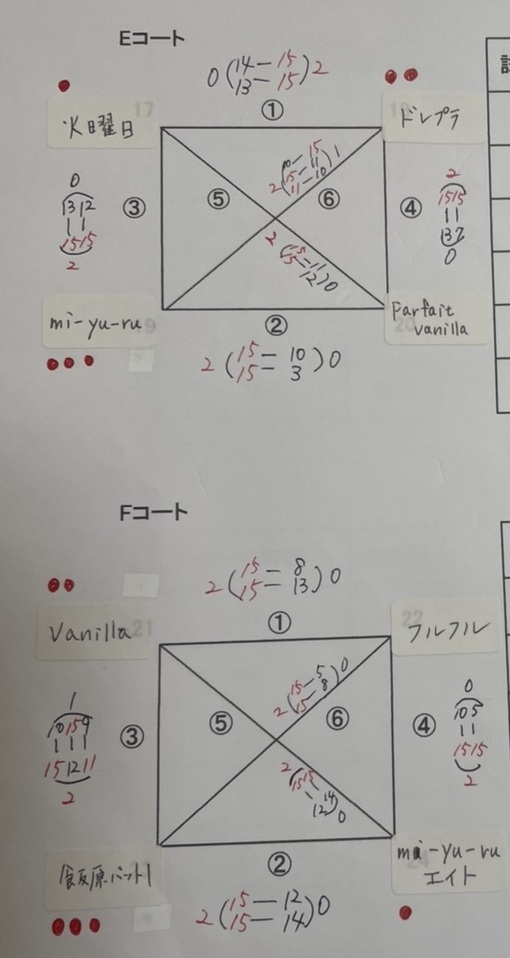 Eコート
0(14-15 13-15)2
①
火曜日
ドレプラ
10-15
2(15-11)1
11-10
0
1312
| |
1515
2
③
⑤
⑥
④
2
1515
| |
137
0
2(15-11 15-12)0
mi-yu-ru
Parfait
vanilla
②
2(15-10 15-3)0
Fコート
2(15-8 15-13)0
①
Vanilla
フルフル
2(15-5 15-8)0
1
10159
| | |
151211
2
③
⑤
⑥
④
0
105
| |
1515
2
2(15-14 15-12)0
mi-yu-ru
エイト
②
2(15-12 15-14)0